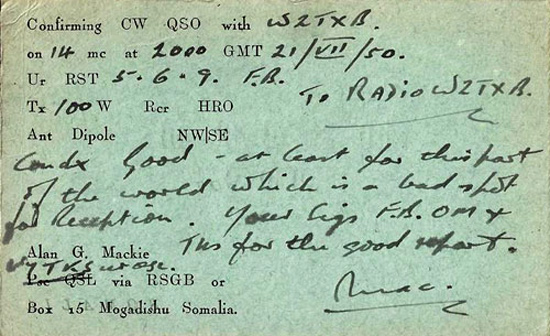 Confirming CW QSO with W2TXB.
on 14 mc at 2000 GMT 21/VII/50.
Ur RST 5.6.9. F.B.
To RADIO W2TXB.
Tx 100 W Rcr HRO
Ant Dipole NW|SE
Condx Good - at least for this part
of the world which is a bad spot
for Reception. Your Sigs F.B. OM &
Tks for the good report.
Alan G. Mackie
Vy TKS ur QSL.
QSL via RSGB or
Mac.
Box 15 Mogadishu Somalia.